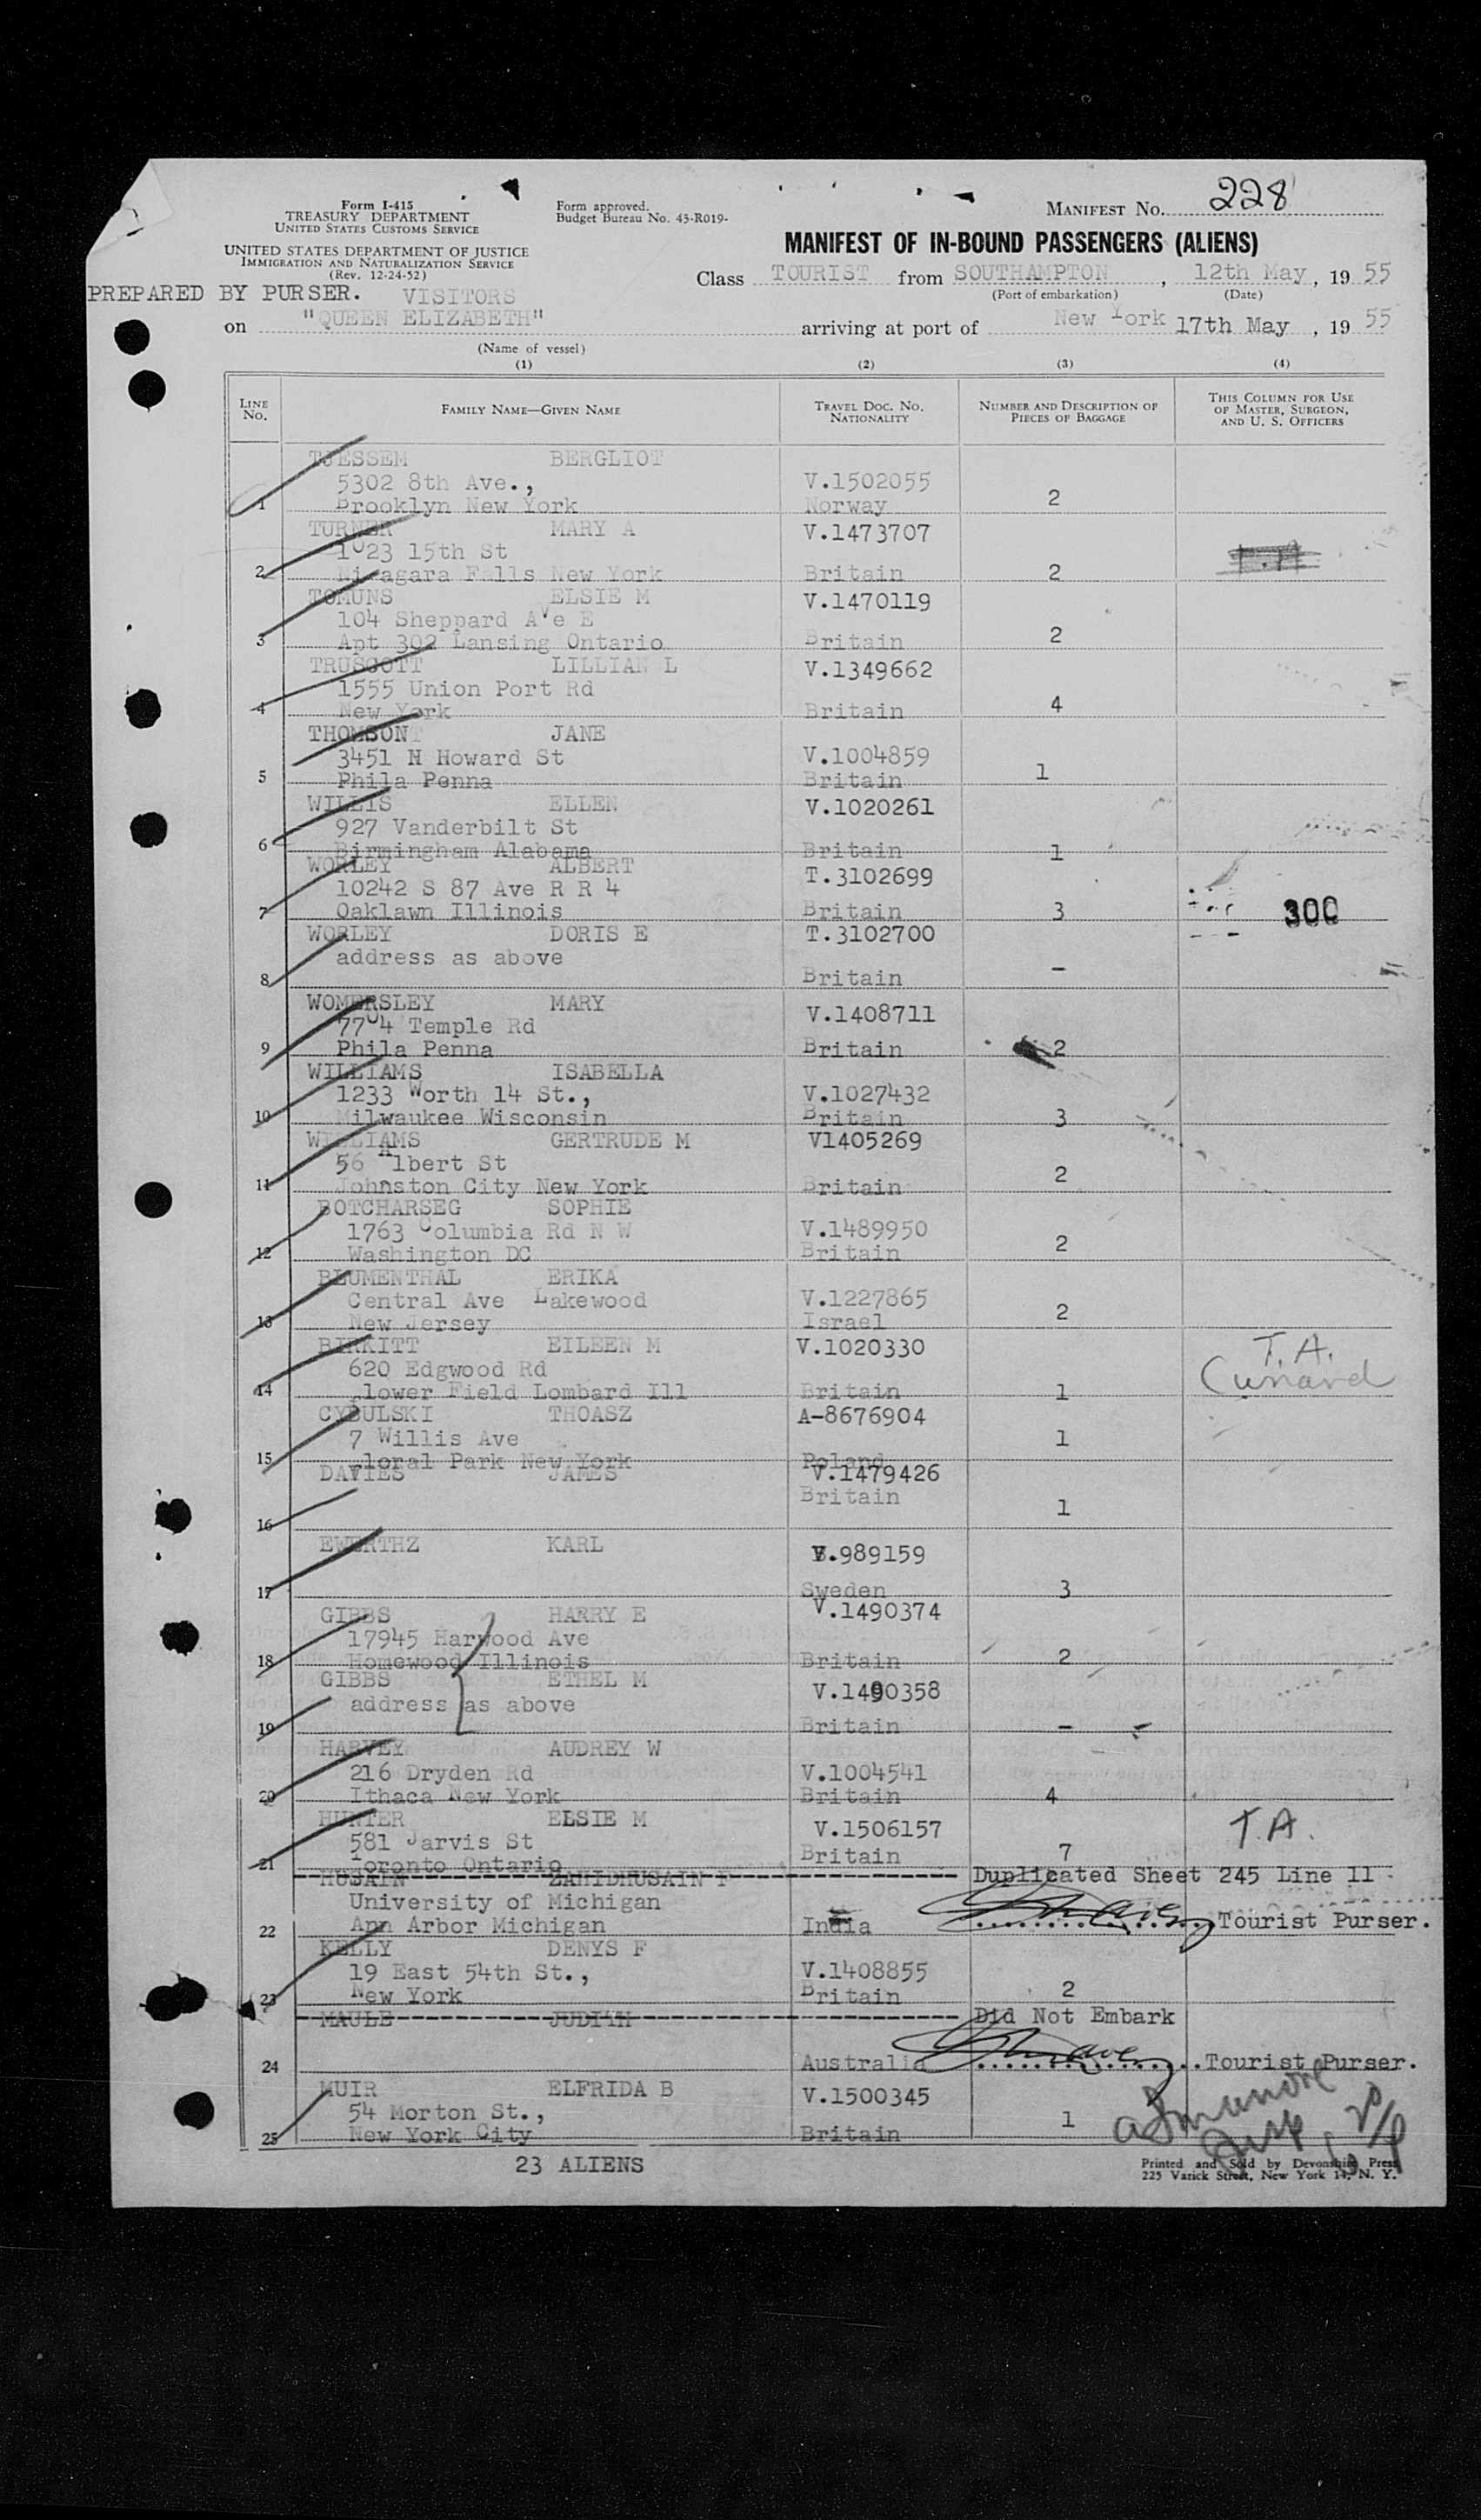 Form I-415
TREASURY DEPARTMENT
UNITED STATES CUSTOMS SERVICE
UNITED STATES DEPARTMENT OF JUSTICE
IMMIGRATION AND NATURALIZATION SERVICE
(Rev. 12-24-52)
Form approved.
Budget Bureau No. 43-R019-
MANIFEST NO. 228
MANIFEST OF IN-BOUND PASSENGERS (ALIENS)
Class TOURIST from SOUTHAMPTON, 12th May, 19 55
(Port of embarkation) (Date)
PREPARED BY PURSER. VISITORS
on "QUEEN ELIZABETH" arriving at port of New York 17th May, 19 55
(Name of vessel)
(1) (2) (3) (4)
LINE NO. FAMILY NAME—GIVEN NAME TRAVEL DOC. NO. NATIONALITY NUMBER AND DESCRIPTION OF PIECES OF BAGGAGE THIS COLUMN FOR USE OF MASTER, SURGEON, AND U. S. OFFICERS
TJESSEM BERGLIOT
5302 8th Ave., V.1502055
1 Brooklyn New York Norway 2
TURNER MARY A V.1473707
1023 15th St
2 Niagara Falls New York Britain 2
TOMUNS ELSIE M V.1470119
104 Sheppard Ave E
3 Apt 302 Lansing Ontario Britain 2
TRUSCOTT LILLIAN L V.1349662
1555 Union Port Rd
4 New York Britain 4
THOMSON JANE
3451 N Howard St V.1004859
5 Phila Penna Britain 1
WILLIS ELLEN V.1020261
927 Vanderbilt St
6 Birmingham Alabama Britain 1
WORLEY ALBERT T.3102699
10242 S 87 Ave R R 4
7 Oaklawn Illinois Britain 3 300
WORLEY DORIS E T.3102700
address as above
8 Britain -
WOMERSLEY MARY V.1408711
7704 Temple Rd
9 Phila Penna Britain 2
WILLIAMS ISABELLA
1233 Worth 14 St., V.1027432
10 Milwaukee Wisconsin Britain 3
WILLIAMS GERTRUDE M V1405269
56 Albert St
11 Johnston City New York Britain 2
BOTCHARSEG SOPHIE
1763 Columbia Rd N W V.1489950
12 Washington DC Britain 2
BLUMENTHAL ERIKA
Central Ave Lakewood V.1227865
13 New Jersey Israel 2
BIRKITT EILEEN M V.1020330 T.A.
620 Edgwood Rd Cunard
14 lower Field Lombard Ill Britain 1
CYBULSKI THOASZ A-8676904
7 Willis Ave 1
15 loral Park New York Poland
DAVIES JAMES V.1479426
Britain
16 1
EWERTHZ KARL V.989159
17 Sweden 3
GIBBS HARRY E V.1490374
17945 Harwood Ave
18 Homewood Illinois Britain 2
GIBBS ETHEL M V.1490358
address as above
19 Britain -
HARVEY AUDREY W
216 Dryden Rd V.1004541
20 Ithaca New York Britain 4
HUNTER ELSIE M V.1506157 T.A.
581 Jarvis St
21 Toronto Ontario Britain 7
HUSAIN ZAHIDHUSAIN F Duplicated Sheet 245 Line 11
University of Michigan
22 Ann Arbor Michigan India Tourist Purser.
KELLY DENYS F
19 East 54th St., V.1408855
23 New York Britain 2
MAULE JUDITH Did Not Embark
24 Australia Tourist Purser.
MUIR ELFRIDA B V.1500345
54 Morton St., 1
25 New York City Britain
23 ALIENS
Printed and Sold by Devonshire Press
225 Varick Street, New York 14, N. Y.